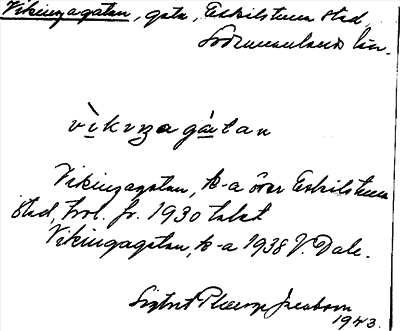 Vikingagatan, gata, Eskilstuna stad,
Södermanlands län.
vìkiŋa gátan
Vikingagatan, k-a över Eskilstuna
stad, trol. fr. 1930 talet
Vikingagatan, k-a 1938 V. Dale.
1943.